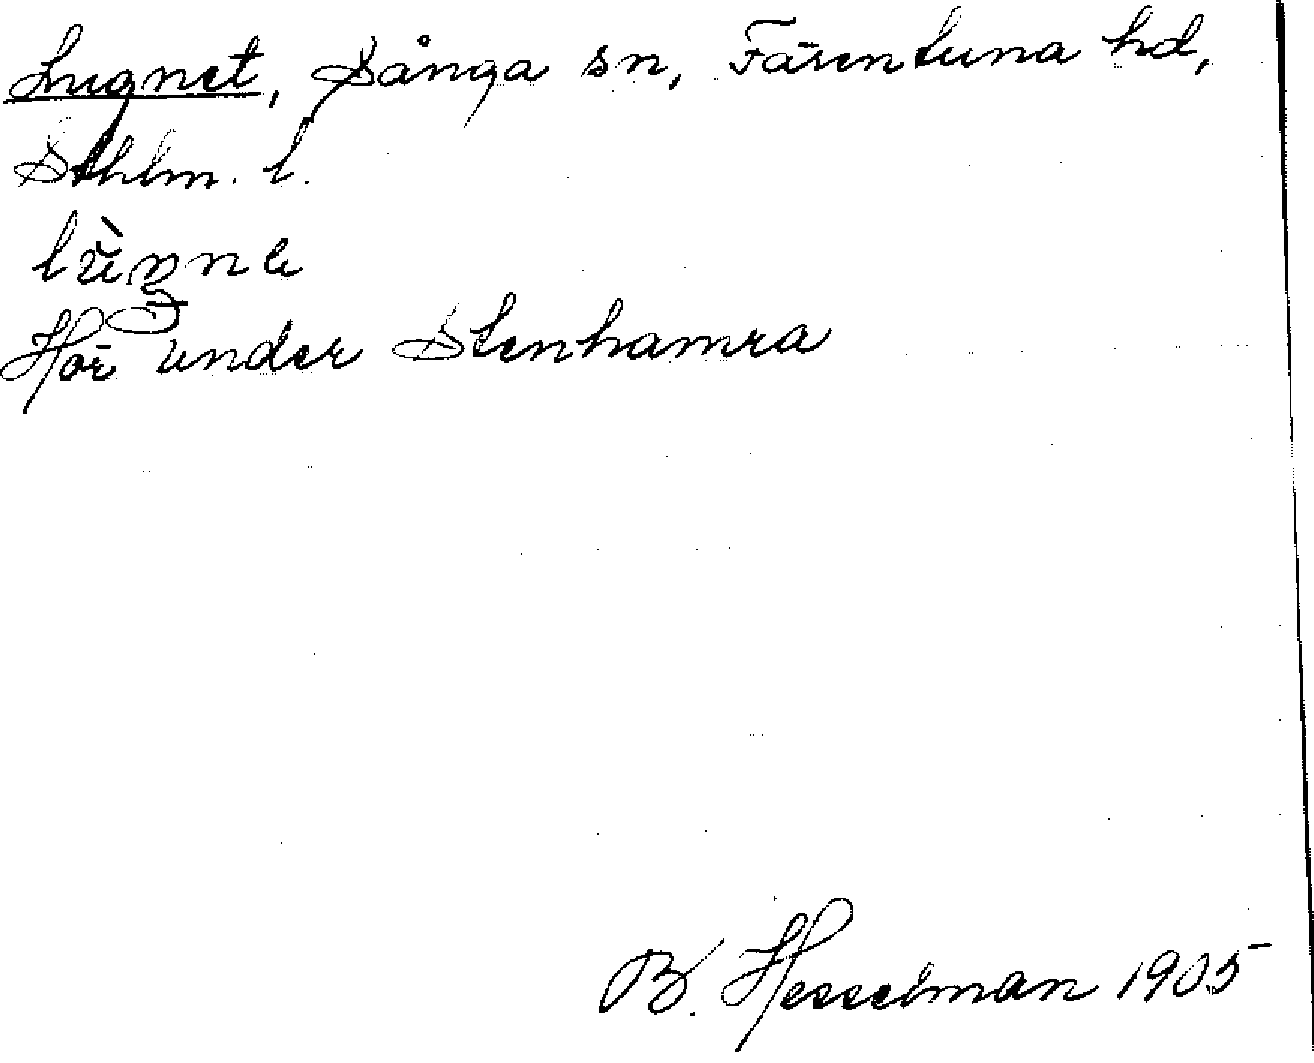 Lugnet, Sånga sn, Färentuna hd,
Sthlm. l.
Hör under Stenhamra
B. Hesselman 1905